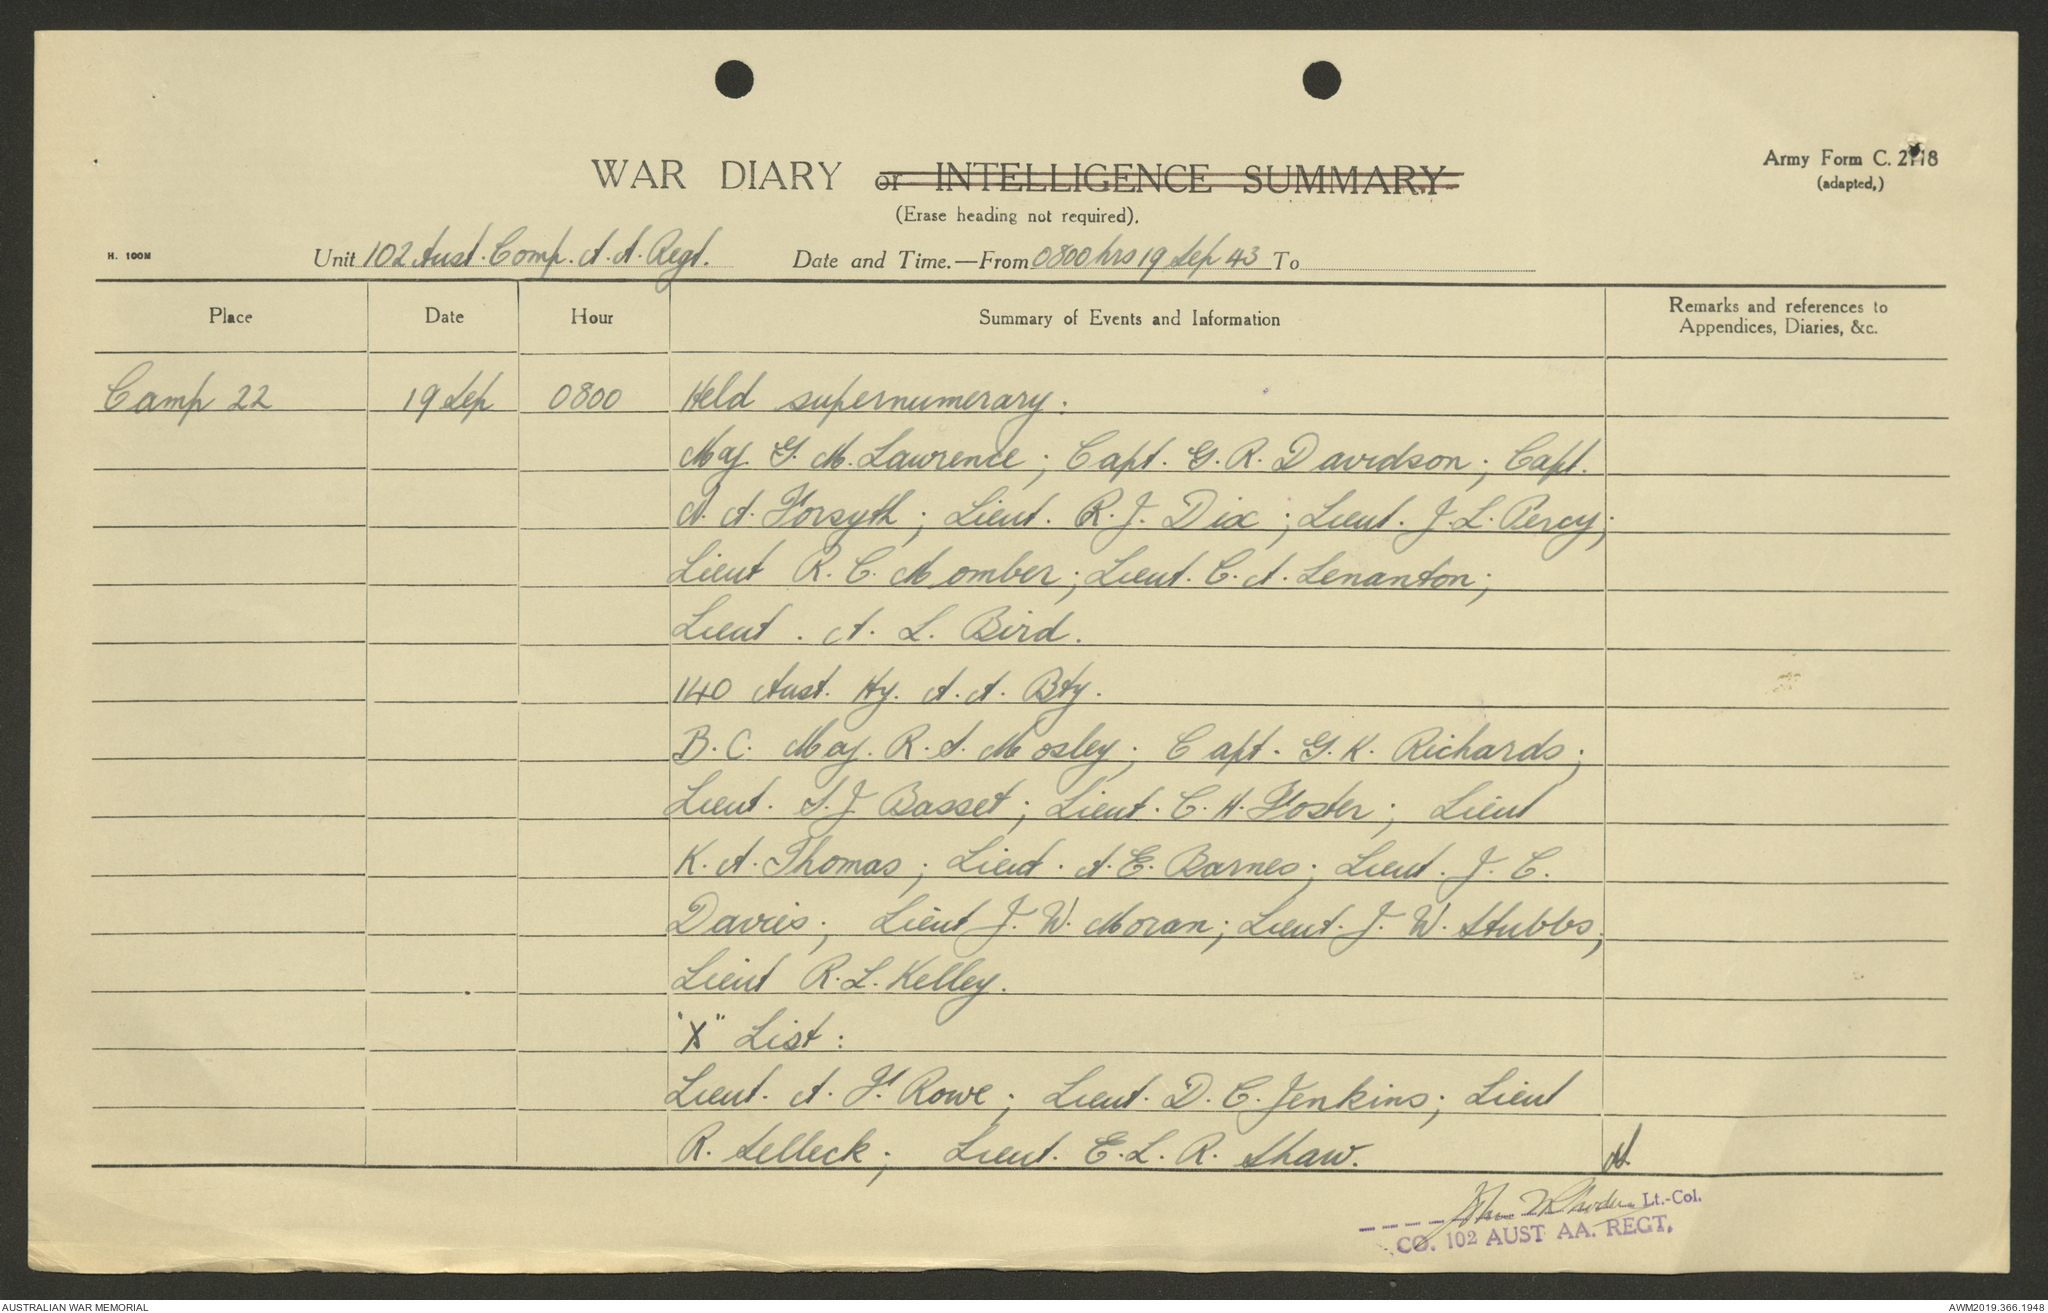 WAR DIARY or INTELLIGENCE SUMMARY
(Erase heading not required).
Army Form C. 2118
(adapted,)
H. 100M
Unit 102 Aust. Comp. A. A. Regt. Date and Time.—From 0800 hrs 19 Sep 43 To
Place Date Hour Summary of Events and Information Remarks and references to
Appendices, Diaries, &c.
Camp 22 19 Sep 0800 Held supernumerary:
Maj. G. M. Lawrence; Capt. G. R. Davidson; Capt.
A. A. Forsyth; Lieut. R. J. Dix; Lieut. J. L. Percy;
Lieut R. C. Momber; Lieut. C. A. Lenanton;
Lieut. A. L. Bird.
140 Aust. Hy. A. A. Bty.
B. C. Maj. R. S. Mosley; Capt. G. K. Richards;
Lieut. S. J Basset; Lieut. C. H. Foster; Lieut
K. A. Thomas; Lieut. A. E. Barnes; Lieut. J. C.
Davies; Lieut J. W. Moran; Lieut. J. W. Stubbs;
Lieut R. L. Kelley.
"X" List:
Lieut. A. F. Rowe; Lieut. D. C. Jenkins; Lieut
R. Selleck; Lieut. E. L. R. Shaw.
Lt.-Col.
CO. 102 AUST AA. REGT.
AUSTRALIAN WAR MEMORIAL
AWM2019.366.1948